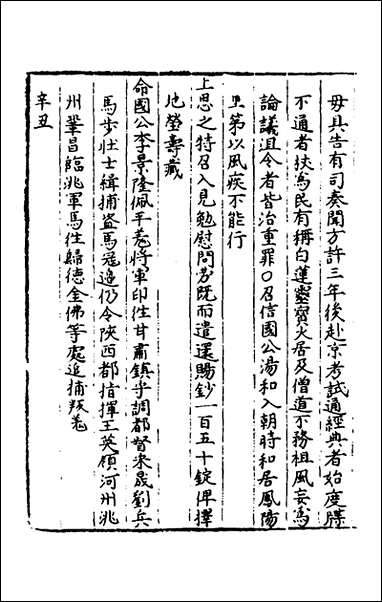 毋具告有司奏聞方許三年後赴京考試通經典者始度牒
不通者扶為民有稱白蓮靈寶火居及僧道不務祖風妄為
論議沮令者皆治重罪〇召信國公湯和入朝時和居鳳陽
里第以風疾不能行
上思之特召入見勉慰問勞既而遣還賜鈔一百五十錠俾擇
地營壽藏
命國公李景隆佩平羌將軍印往甘肅鎮守調都督宋晟劉
馬步壯士緝捕盜馬寇邊仍令陝西都指揮王英領河州洮
州鞏昌臨洮軍馬往歸德金佛等處追捕叛羌
辛丑